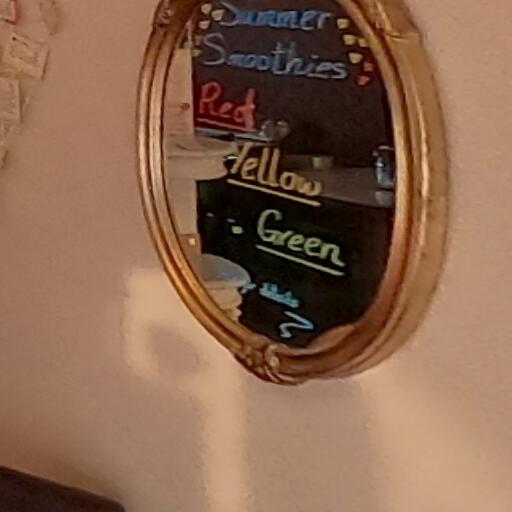 Summer
Smoothies
Red
Yellow
Green